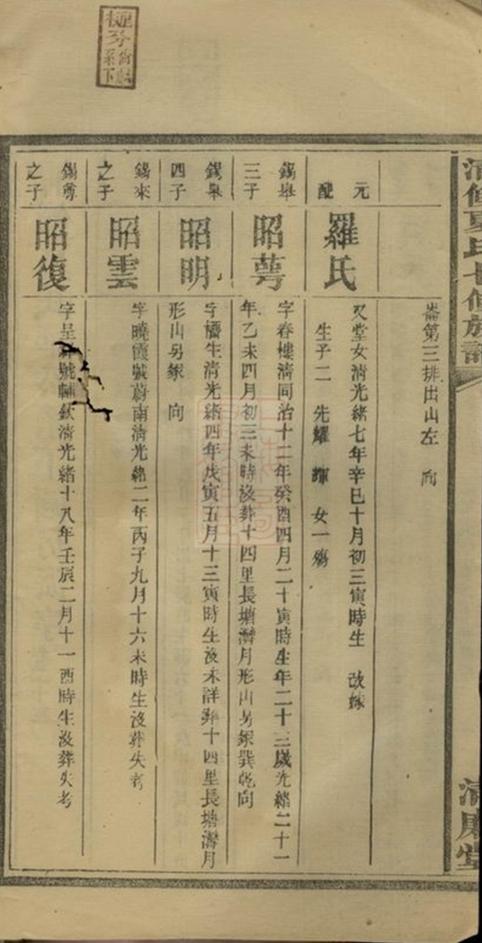 夏氏七修族譜
崙第三排出山左 向
元配
羅氏
又堂女清光緒七年辛巳十月初三寅時生 改嫁
生子二 先耀 輝 女一殤
錫舉三子
昭萼
字春樓清同治十二年癸酉四月二十寅時生年二十三歲光緒二十一
年乙未四月初三未時沒葬十四里長塘灣月形山另繚巽乾向
錫舉四子
昭明
清光緒四年戊寅五月十三寅時生沒未詳葬十四里長塘灣月
形山另繚 向
錫來之子
昭雲
字曉霞號蔚南清光緒二年丙子九月十六未時生沒葬失考
錫尊之子
昭復
字呈 號輔 清光緒十八年壬辰二月十一酉時生沒葬失考